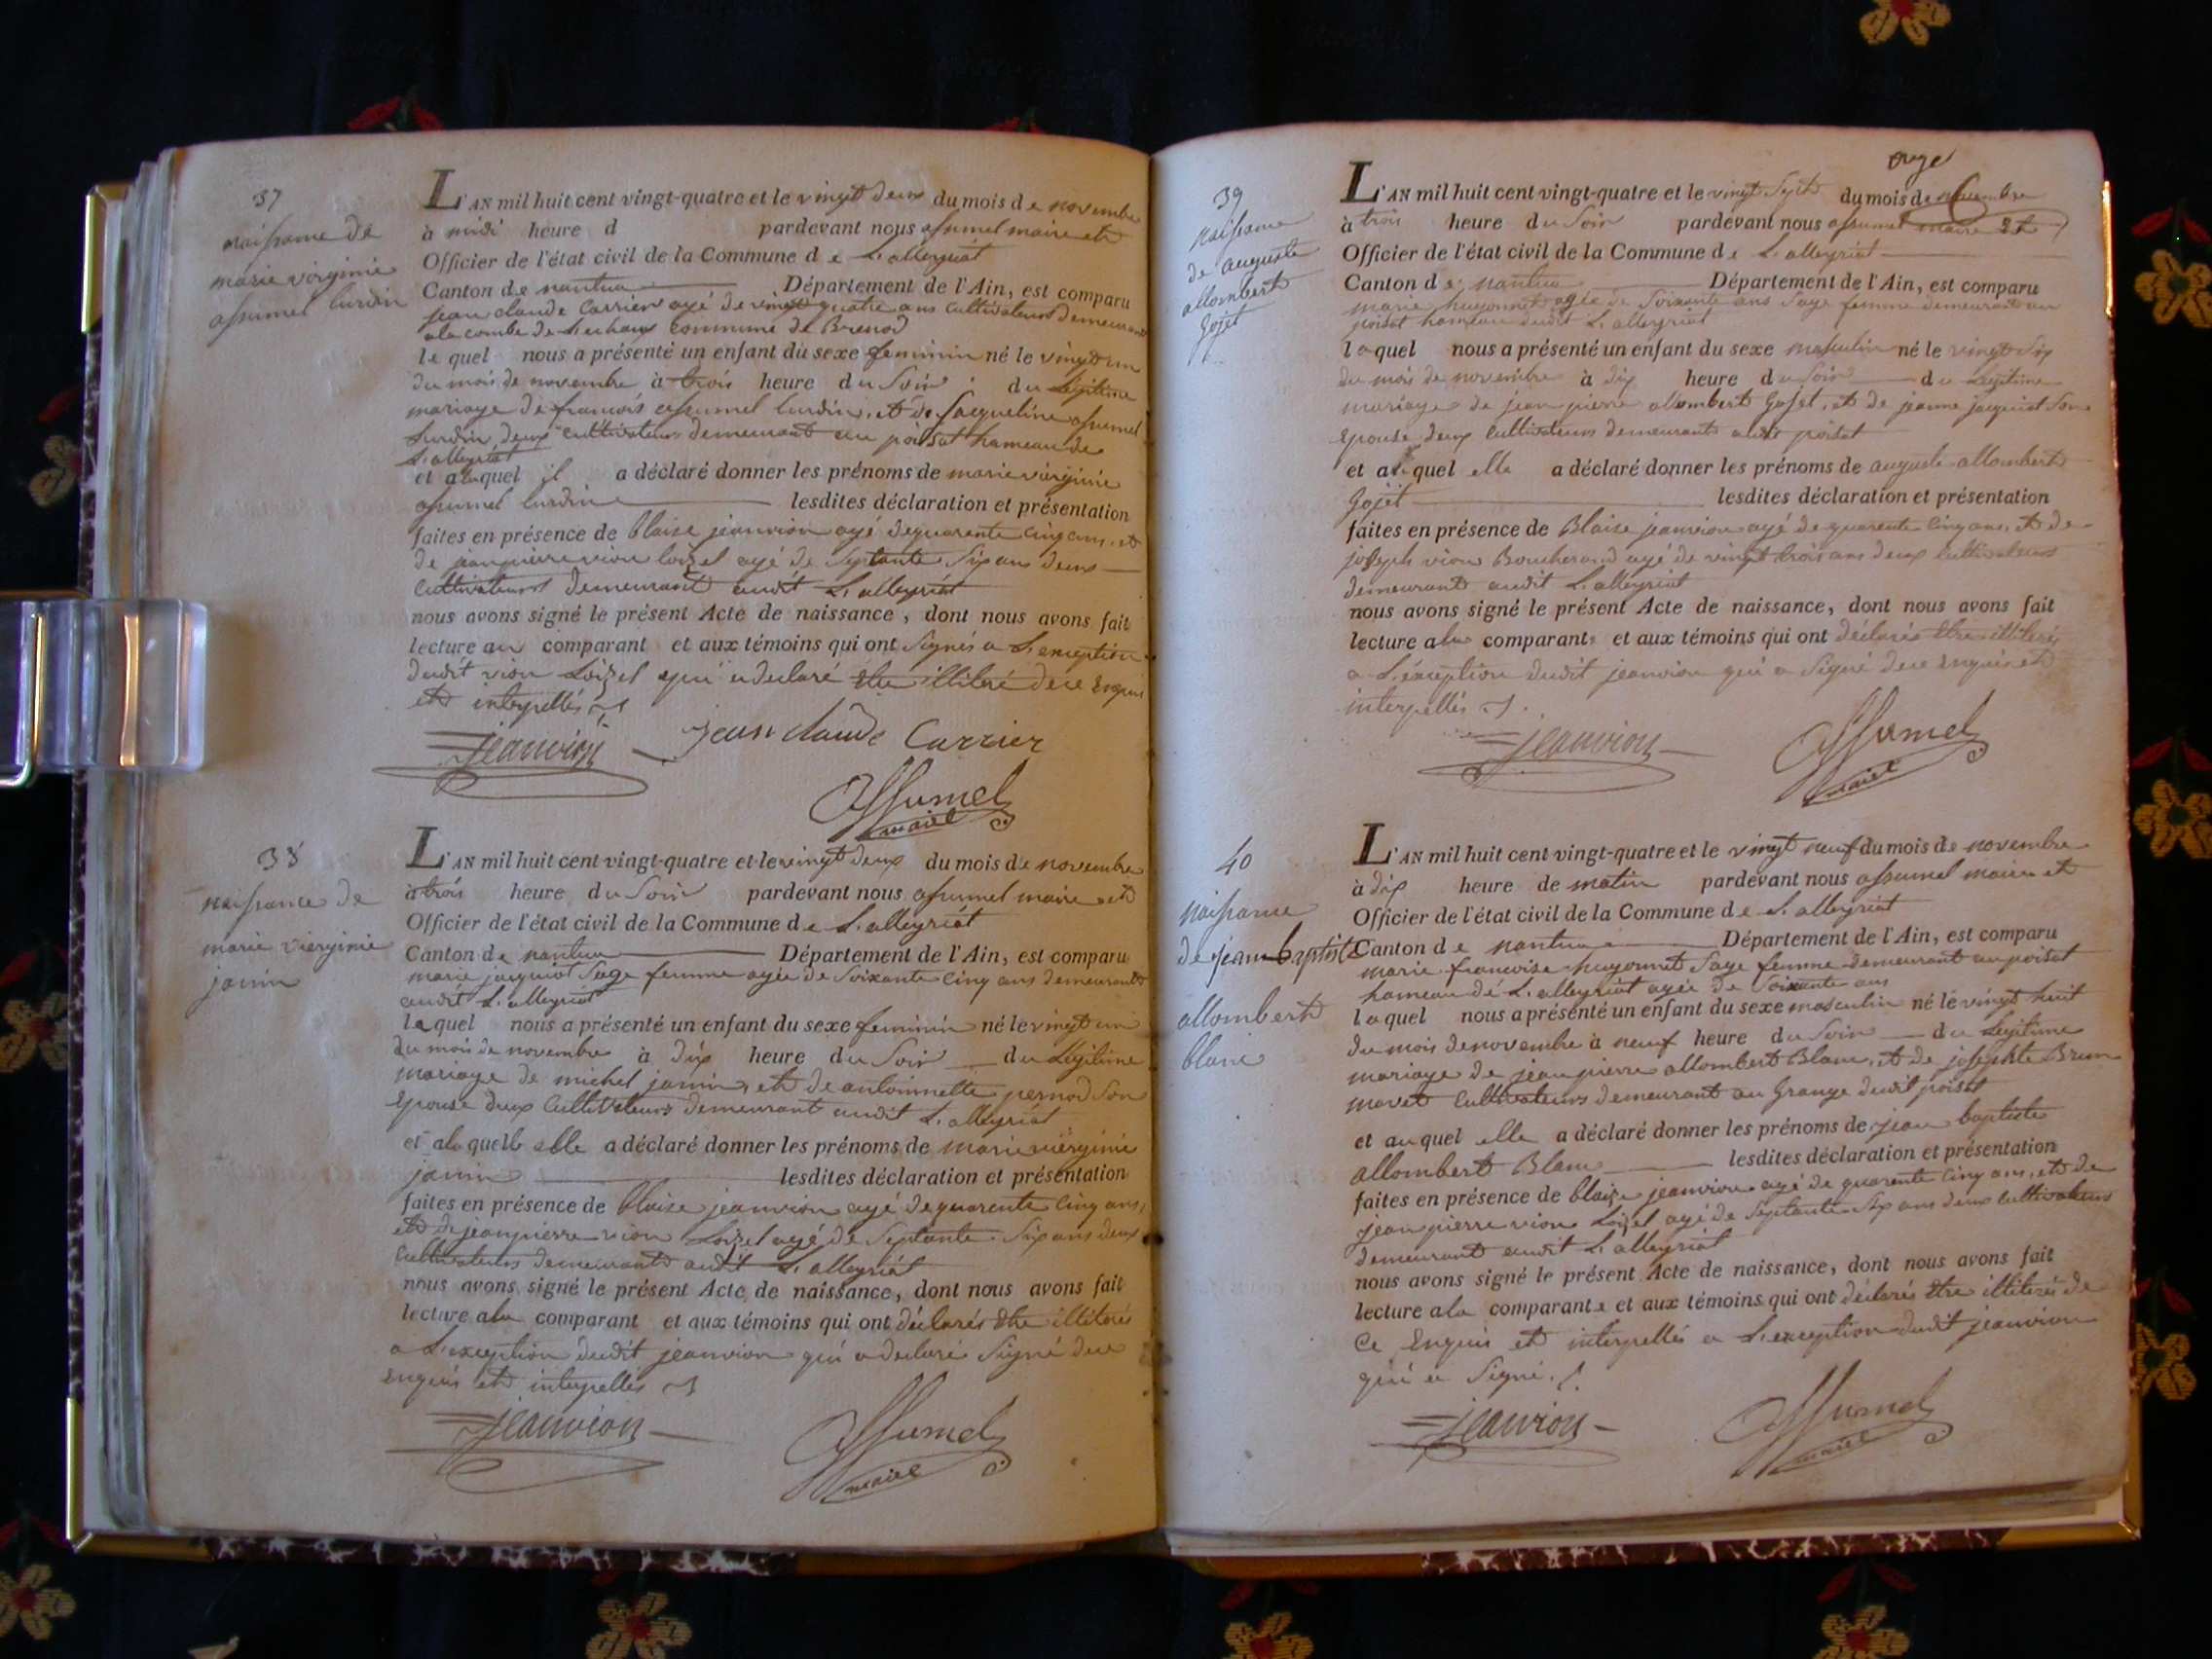 37
naissance de
marie virginie
assumel lurdin
L'AN mil huit cent vingt-quatre et le vingt deux du mois de novembre
à midi heure d pardevant nous assumel maire et
Officier de l'état civil de la Commune de L'alleyriat
Canton de nantua Département de l'Ain, est comparu
jean claude Carrier agé de vingt quatre ans Cultivateur demeurant
a la combe de Commune de Brenod
le quel nous a présenté un enfant du sexe feminin né le vingt un
du mois de novembre à trois heure du Soir du Legitime
mariage de francois assumel lurdin, et de Jacqueline assumel
Lurdin deux Cultivateurs demeurant au poisat hameau de
L'alleyriat
et alaquel il a déclaré donner les prénoms de marie virginie
assumel lurdin lesdites déclaration et présentation
faites en présence de blaise jeanvion agé de quarente Cinq ans, et
de jeanpierre vion loizel agé de Septante Six ans deux
Cultivateurs demeurant audit L'alleyriat
nous avons signé le présent Acte de naissance, dont nous avons fait
lecture au comparant et aux témoins qui ont Signés a L'exception
dudit vion Loizel qui a declaré etre illitéré de ce Enquis
et interpellés
jeanvion jean claude Carrier
assumel
maire
38
naissance de
marie vierginie
janin
L'AN mil huit cent vingt-quatre et le vingt deux du mois de novembre
à trois heure du Soir pardevant nous assumel maire et
Officier de l'état civil de la Commune de L'alleyriat
Canton de nantua Département de l'Ain, est comparu
marie jacquiot Sage femme agée de Soixante Cinq ans demeurant
audit L'alleyriat
laquel nous a présenté un enfant du sexe feminin né le vingt un
du mois de novembre à dix heure du Soir du Legitime
mariage de michel janin, et de antoinnette pernod Son
Epouse deux Cultivateurs demeurant audit L'alleyriat
et alaquelle elle a déclaré donner les prénoms de marie vierginie
janin lesdites déclaration et présentation
faites en présence de blaise jeanvion agé de quarente Cinq ans,
et de jeanpierre vion Loizel agé de Septante Six ans deux
Cultivateurs demeurant audit L'alleyriat
nous avons signé le présent Acte de naissance, dont nous avons fait
lecture ala comparant et aux témoins qui ont déclarés etre illitérés
a L'exception dudit jeanvion qui a declaré Signé de ce
Enquis et interpellés
jeanvion assumel
maire
39
naissance
de auguste
allombert
Gojet
L'AN mil huit cent vingt-quatre et le vingt Sept du mois de novembre
à trois heure du Soir pardevant nous assumel maire et
Officier de l'état civil de la Commune de L'alleyriat
Canton de nantua Département de l'Ain, est comparu
marie hugonnet agée de Soixante ans Sage femme demeurant au
poisat hameau dudit L'alleyriat
laquel nous a présenté un enfant du sexe masculin né le vingt Six
du mois de novembre à dix heure du Soir du Legitime
mariage de jean pierre allombert Gojet, et de jeanne jacquiot Son
Epouse deux Cultivateurs demeurant audit poisat
et auquel elle a déclaré donner les prénoms de auguste allombert
Gojet lesdites déclaration et présentation
faites en présence de Blaise jeanvion agé de quarente Cinq ans, et de
joseph vion Boucherand agé de vingt trois ans deux Cultivateurs
demeurant audit L'alleyriat
nous avons signé le présent Acte de naissance, dont nous avons fait
lecture ala comparante et aux témoins qui ont déclarés etre illitérés
a L'éxception dudit jeanvion qui a Signé de ce Enquis et
interpellés
jeanvion assumel
maire
40
naissance
de jean baptiste
allombert
blanc
L'AN mil huit cent vingt-quatre et le vingt neuf du mois de novembre
à dix heure de matin pardevant nous assumel maire et
Officier de l'état civil de la Commune de L'alleyriat
Canton de nantua Département de l'Ain, est comparu
marie francoise hugonnet Sage femme demeurant au poisat
hameau de L'alleyriat agée de Soixante ans
laquel nous a présenté un enfant du sexe masculin né le vingt huit
du mois de novembre à neuf heure du Soir du Legitime
mariage de jean pierre allombert Blanc, et de josephte Brun
mavet Cultivateurs demeurant au Grange dudit poisat
et auquel elle a déclaré donner les prénoms de jean baptiste
allombert Blanc lesdites déclaration et présentation
faites en présence de blaize jeanvion agé de quarente Cinq ans, et de
jean pierre vion Loizel agé de Septante Six ans deux Cultivateurs
demeurant audit L'alleyriat
nous avons signé le présent Acte de naissance, dont nous avons fait
lecture ala comparante et aux témoins qui ont déclarés etre illitérés de
Ce Enquis et interpellés a L'exception dudit jeanvion
qui a Signé.
jeanvion assumel
maire